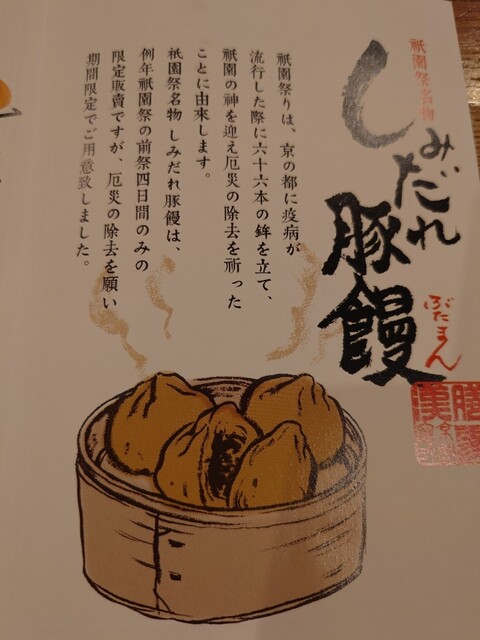 祇園祭名物
しみだれ
豚饅
ぶたまん
祇園祭りは、京の都に疫病が
流行した際に六十六本の鉾を立て、
祇園の神を迎え厄災の除去を祈った
ことに由来します。
祇園祭名物 しみだれ豚饅は、
例年祇園祭の前祭四日間のみの
限定販売ですが、厄災の除去を願い
期間限定でご用意致しました。